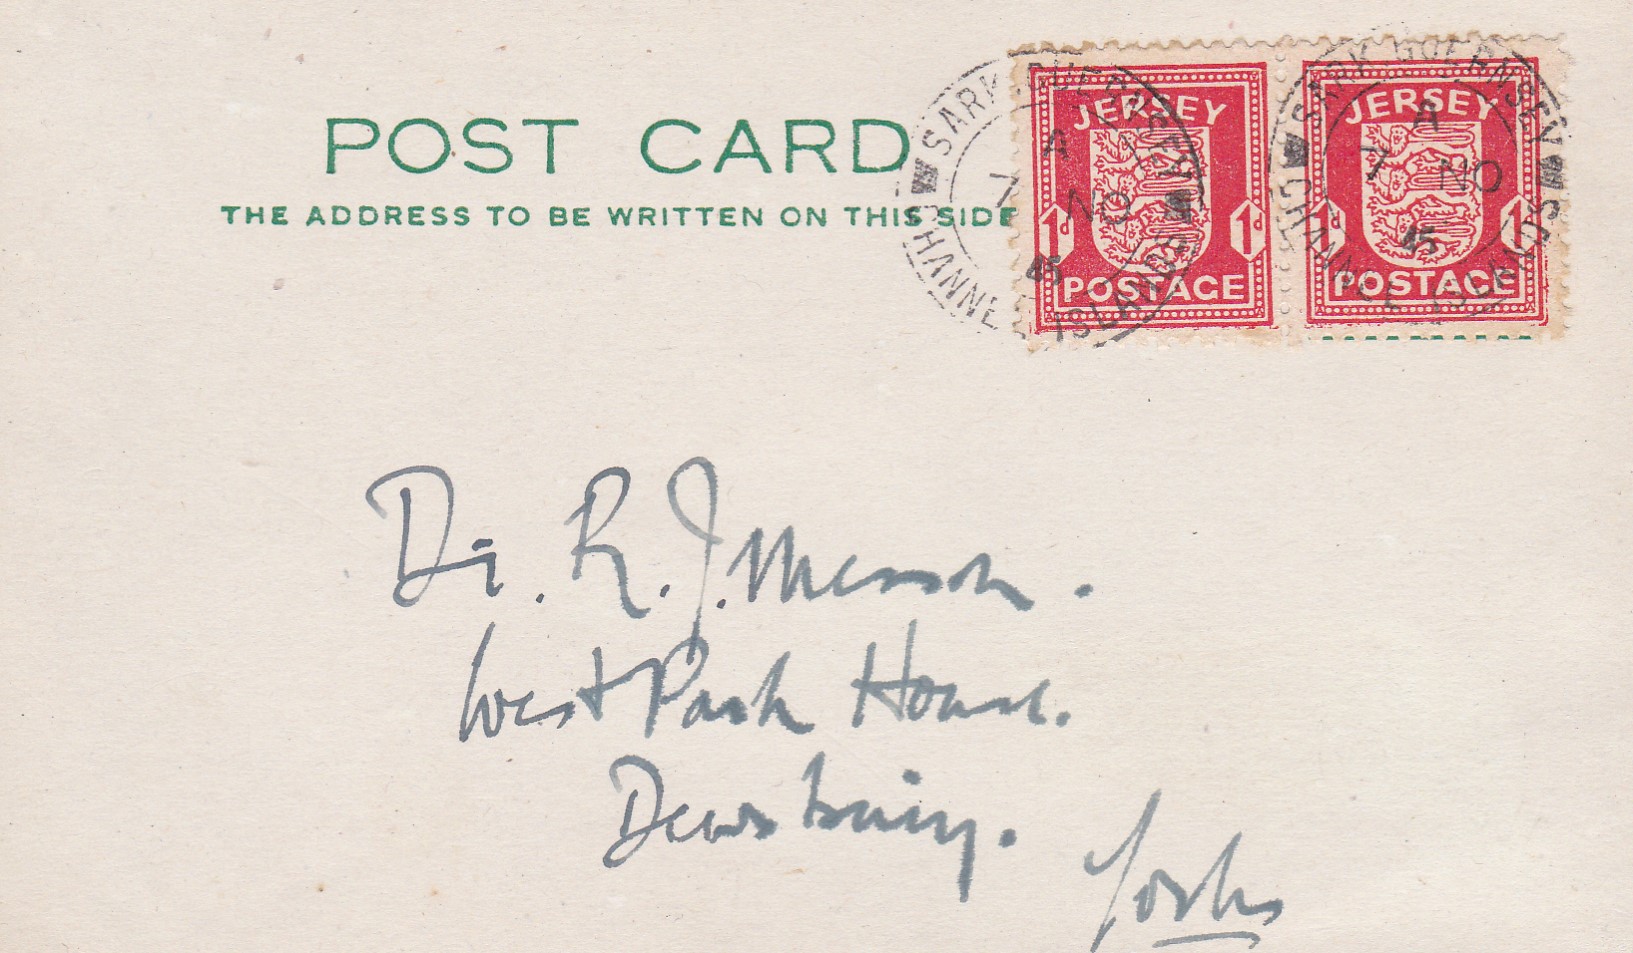 POST CARD
THE ADDRESS TO BE WRITTEN ON THIS SIDE
JERSEY
1d 1d
POSTAGE
JERSEY
1d 1d
POSTAGE
SARK GUERNSEY
A
7 NO
45
CHANNEL ISLANDS
SARK GUERNSEY
A
7 NO
45
CHANNEL ISLANDS
Dr. R. J.
West Park House.
Dewsbury.
Yorks